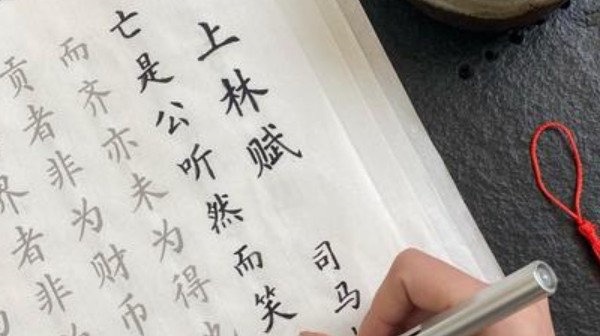 上林赋 司马
亡是公听然而笑
而齐亦未为得也
贡者非为财币
界者非